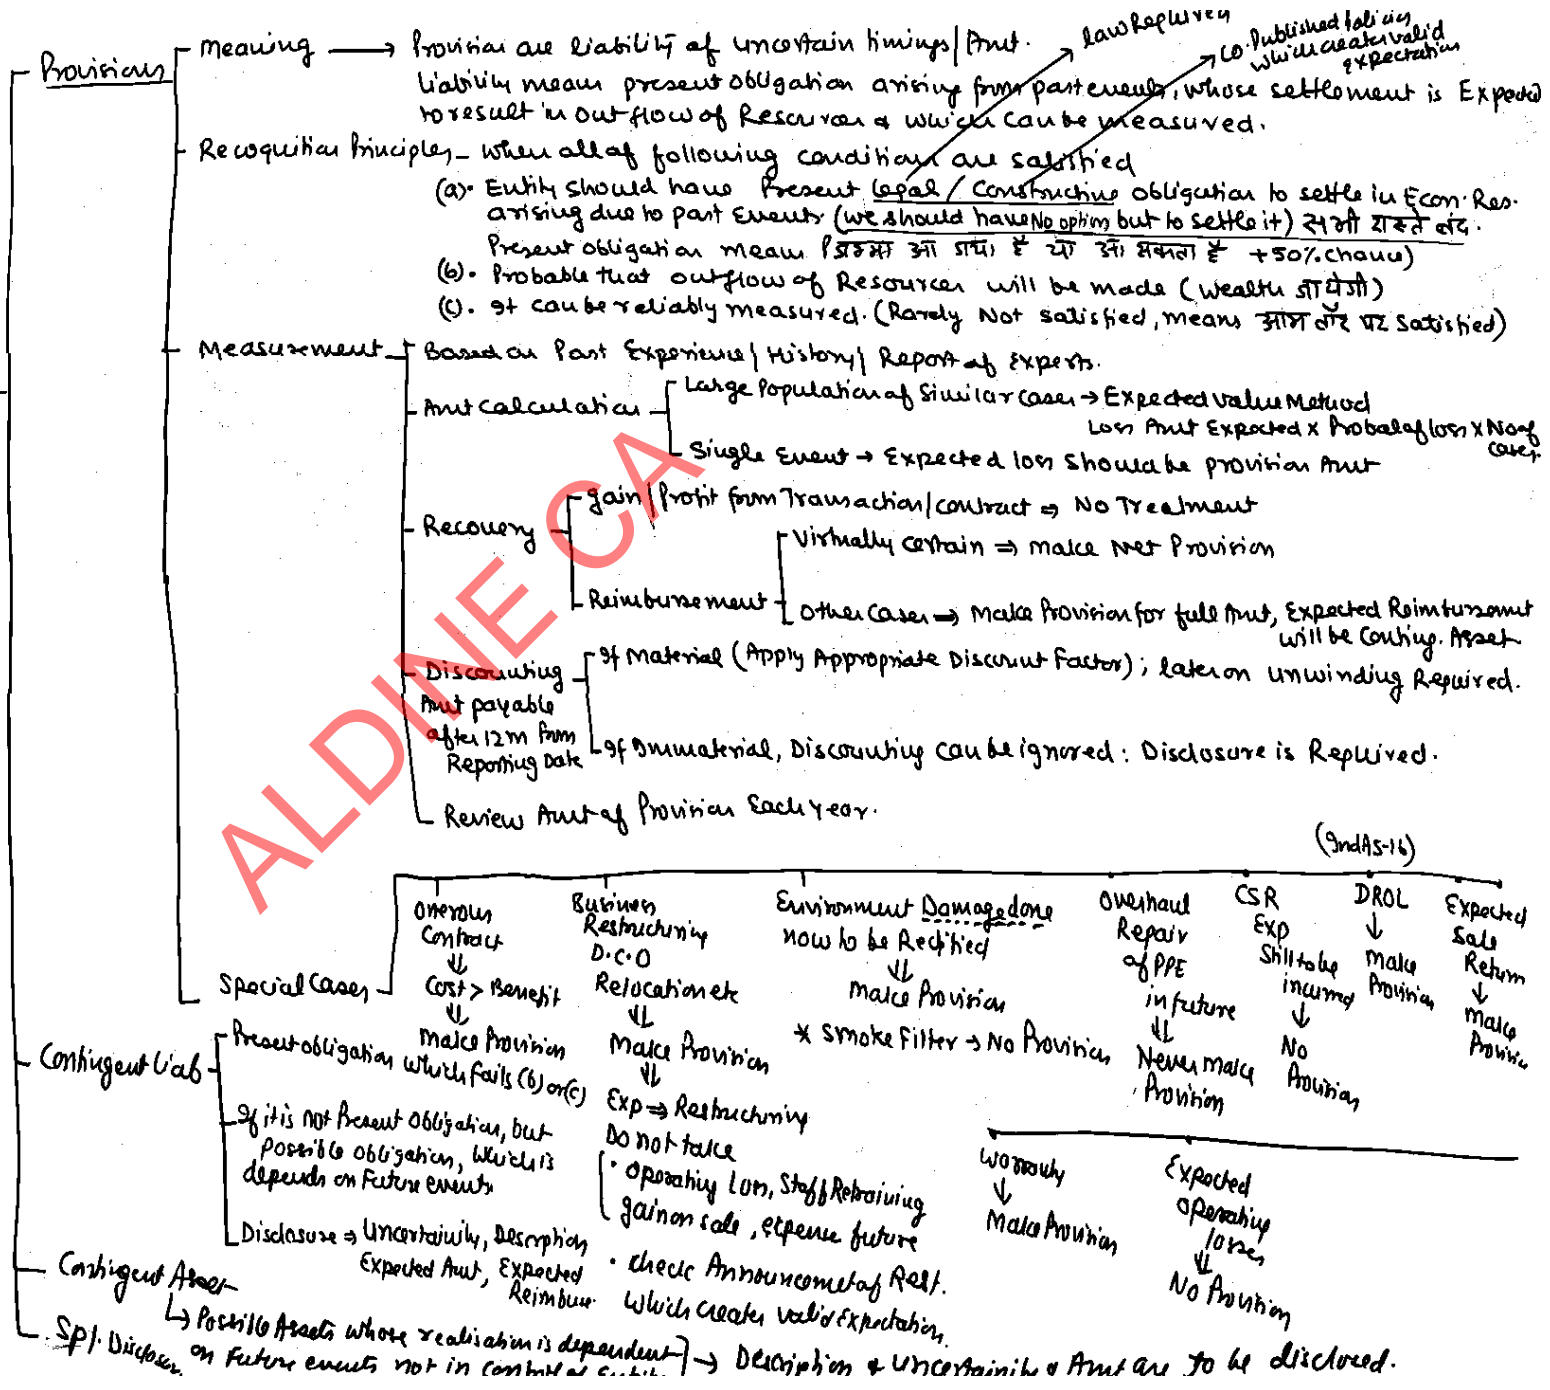 law Required
Co. Published Policies
which creates valid
expectation
Provisions
Meaning → Provision are liability of uncertain timings/Amt.
Liability means present obligation arising from past events, whose settlement is Expected
to result in outflow of Resources & which can be measured.
Recognition Principles - When all of following conditions are satisfied
(a). Entity should have Present Legal / Constructive obligation to settle in Econ. Res.
arising due to past Events (we should have No option but to settle it) सभी रास्ते बंद.
Present obligation means आ गया है या आ सकता है +50% chance)
(b). Probable that outflow of Resources will be made (Wealth जायेगी)
(c). It can be reliably measured. (Rarely Not satisfied, means आम तौर पर satisfied)
Measurement
Based on Past Experience / History / Report of Experts.
Amt Calculation
Large Population of Similar cases → Expected Value Method
Loss Amt Expected x Proba of loss x No of
cases.
Single Event → Expected loss should be provision Amt
Recovery
gain / Profit from Transaction / contract ⇒ No Treatment
Reimbursement
Virtually certain ⇒ make Net Provision
Other Cases ⇒ Make Provision for full Amt, Expected Reimbursemnt
will be Conting. Asset
Discounting
Amt payable
after 12m from
Reporting Date
If Material (Apply Appropriate Discount Factor); later on unwinding Required.
If Immaterial, Discounting can be ignored: Disclosure is Required.
Review Amt of Provision Each year.
Special Cases
Onerous
Contract
⇓
Cost > Benefit
⇓
Make Provision
Business
Restructuring
D.C.O
Relocation etc
⇓
Make Provision
⇓
Exp ⇒ Restructuring
Do not take
• operating Loss, Staff Retraining
gain on sale, expense future
• check Announcemet of Rest.
which creates valid Expectation.
Environment Damage done
now to be Rectified
⇓
Make Provision
* Smoke Filter → No Provision
Overhaul
Repair
of PPE
in future
⇓
Never make
Provision
CSR
Exp
Still to be
incurred
↓
No
Provision
(IndAS-16)
DROL
↓
Make
Provision
Expected
Sale
Return
↓
Make
Provision
Warranty
↓
Make Provision
Expected
operating
losses
⇓
No Provision
Contingent Liab
Present obligation which fails (b) or (c)
If it is not Present Obligation, but
possible obligation, which is
depends on Future events
Disclosure ⇒ Uncertainity, Description
Expected Amt, Expected
Reimburse.
Contingent Asset
↳ Possible Assets whose realisation is dependent
on Future events not in control of Entity
→ Description & uncertainity & Amt are to be disclosed.
Spl. Disclosure
ALDINE CA